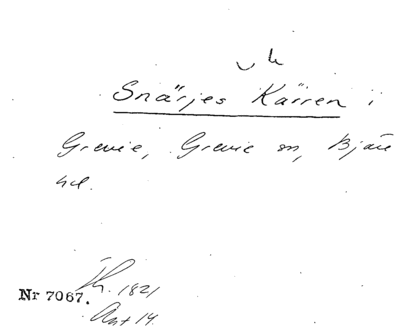 Snärjes Kärren i
Grevie, Grevie sn, Bjäre
hd.
Nr 7067. Th. 1821
Ant 14.